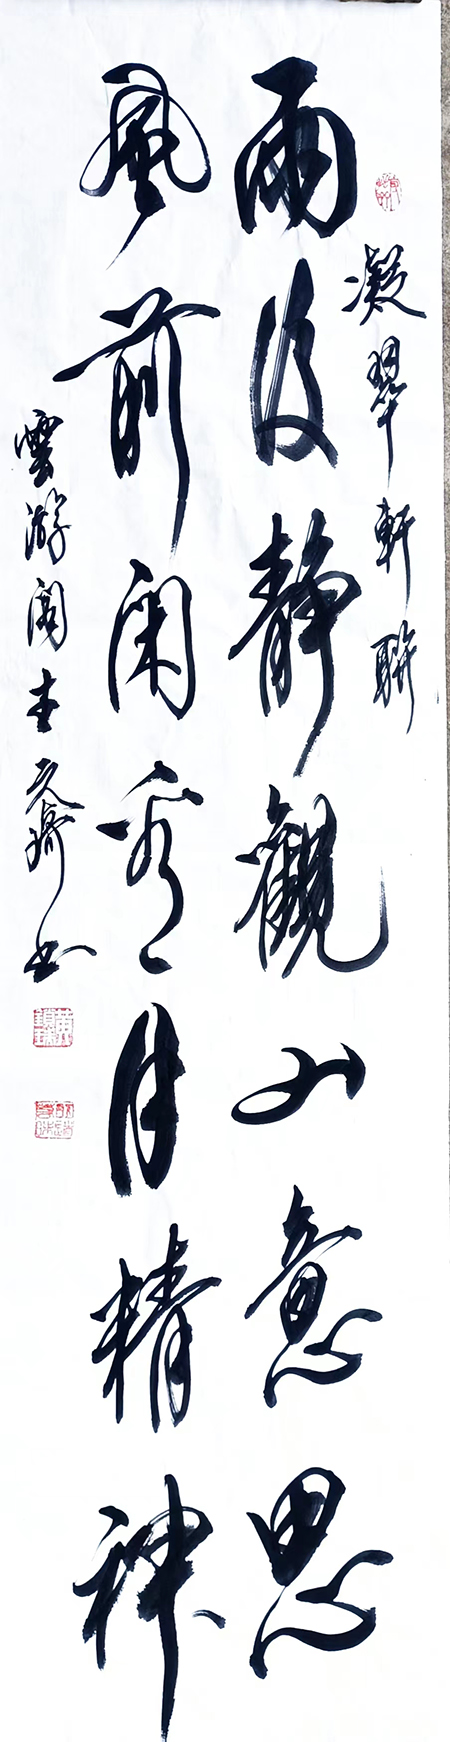 凝翠軒聯
雨後静觀山意思
風前閑看月精神
雲游閣主文齋书